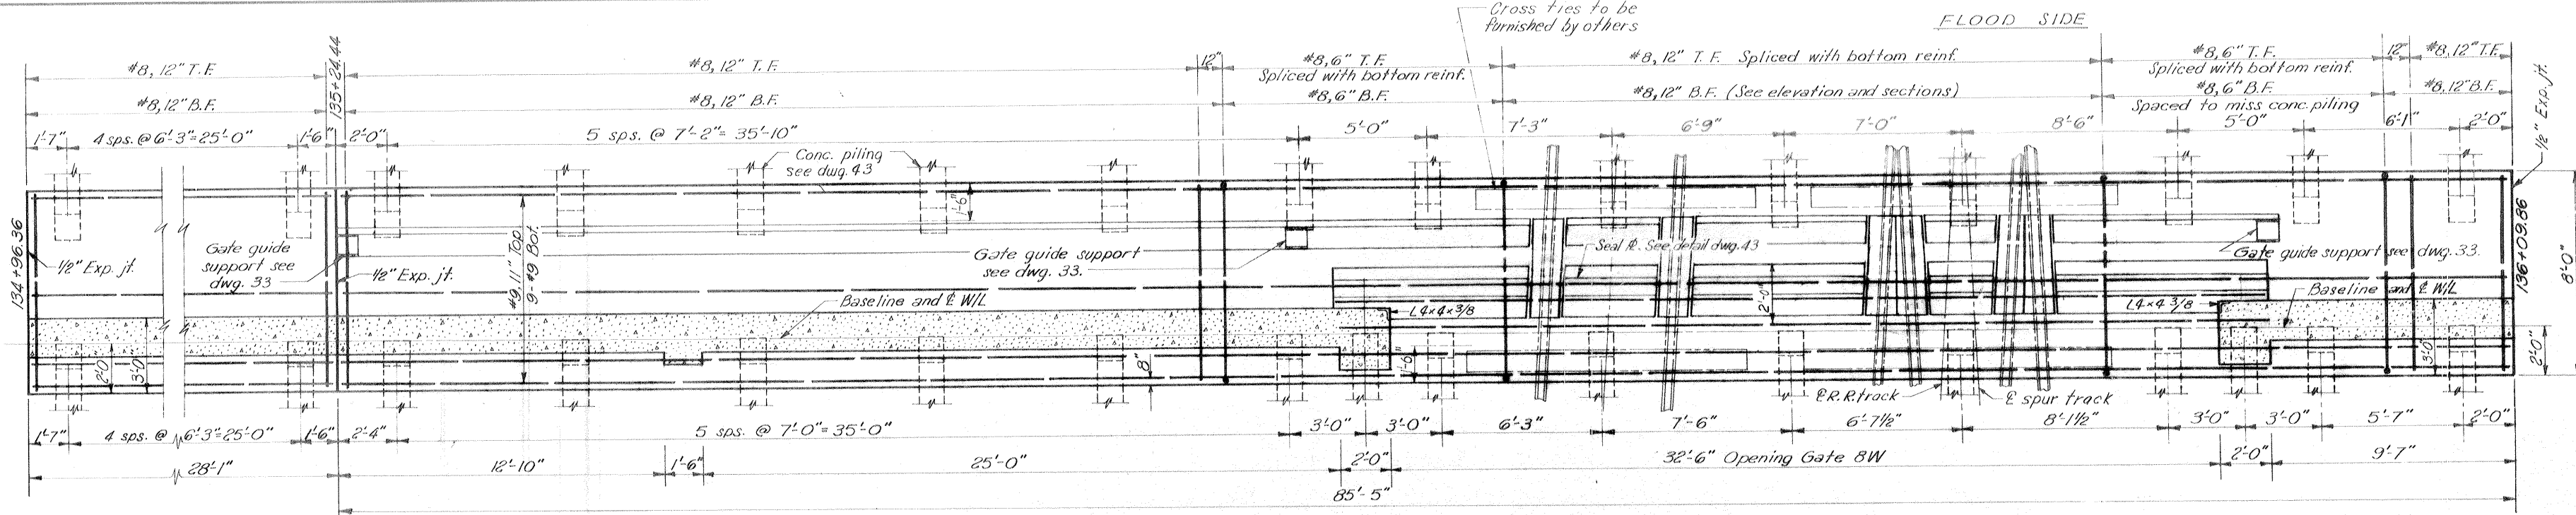 Cross ties to be
furnished by others
FLOOD SIDE
#8, 12" T.F.
135+24.44
#8, 12" T.F.
12"
#8, 6" T.F.
Spliced with bottom reinf.
#8, 12" T.F. Spliced with bottom reinf.
#8, 6" T.F.
Spliced with bottom reinf.
12"
#8, 12" T.F.
#8, 12" B.F.
#8, 12" B.F.
#8, 6" B.F.
#8, 12" B.F. (See elevation and sections)
#8, 6" B.F.
Spaced to miss conc. piling
#8, 12" B.F.
1/2" Exp. jt.
1'-7"
4 sps. @ 6'-3"=25'-0"
1'-6"
2'-0"
5 sps. @ 7'-2"= 35'-10"
5'-0"
7'-3"
6'-9"
7'-0"
8'-6"
5'-0"
6'-1"
2'-0"
Conc. piling
see dwg. 43
1'-6"
134+96.36
1/2" Exp. jt.
Gate guide
support see
dwg. 33
1/2" Exp. jt.
#9, 11" Top
9-#9 Bot.
Gate guide support
see dwg. 33.
Seal ℄. See detail dwg. 43
Gate guide support see dwg. 33.
136+09.86
8'-0"
Baseline and ℄ W/L
L4×4×3/8
2'-0"
L4×4 3/8
Baseline and ℄ W/L
2'-0"
3'-0"
8"
1'-6"
3'-0"
2'-0"
℄ R.R. track
℄ spur track
1'-7"
4 sps. @ 6'-3"=25'-0"
1'-6"
2'-4"
5 sps. @ 7'-0"= 35'-0"
3'-0"
3'-0"
6'-3"
7'-6"
6'-7½"
8'-1½"
3'-0"
3'-0"
5'-7"
2'-0"
28'-1"
12'-10"
1'-6"
25'-0"
2'-0"
32'-6" Opening Gate 8W
2'-0"
9'-7"
85'-5"